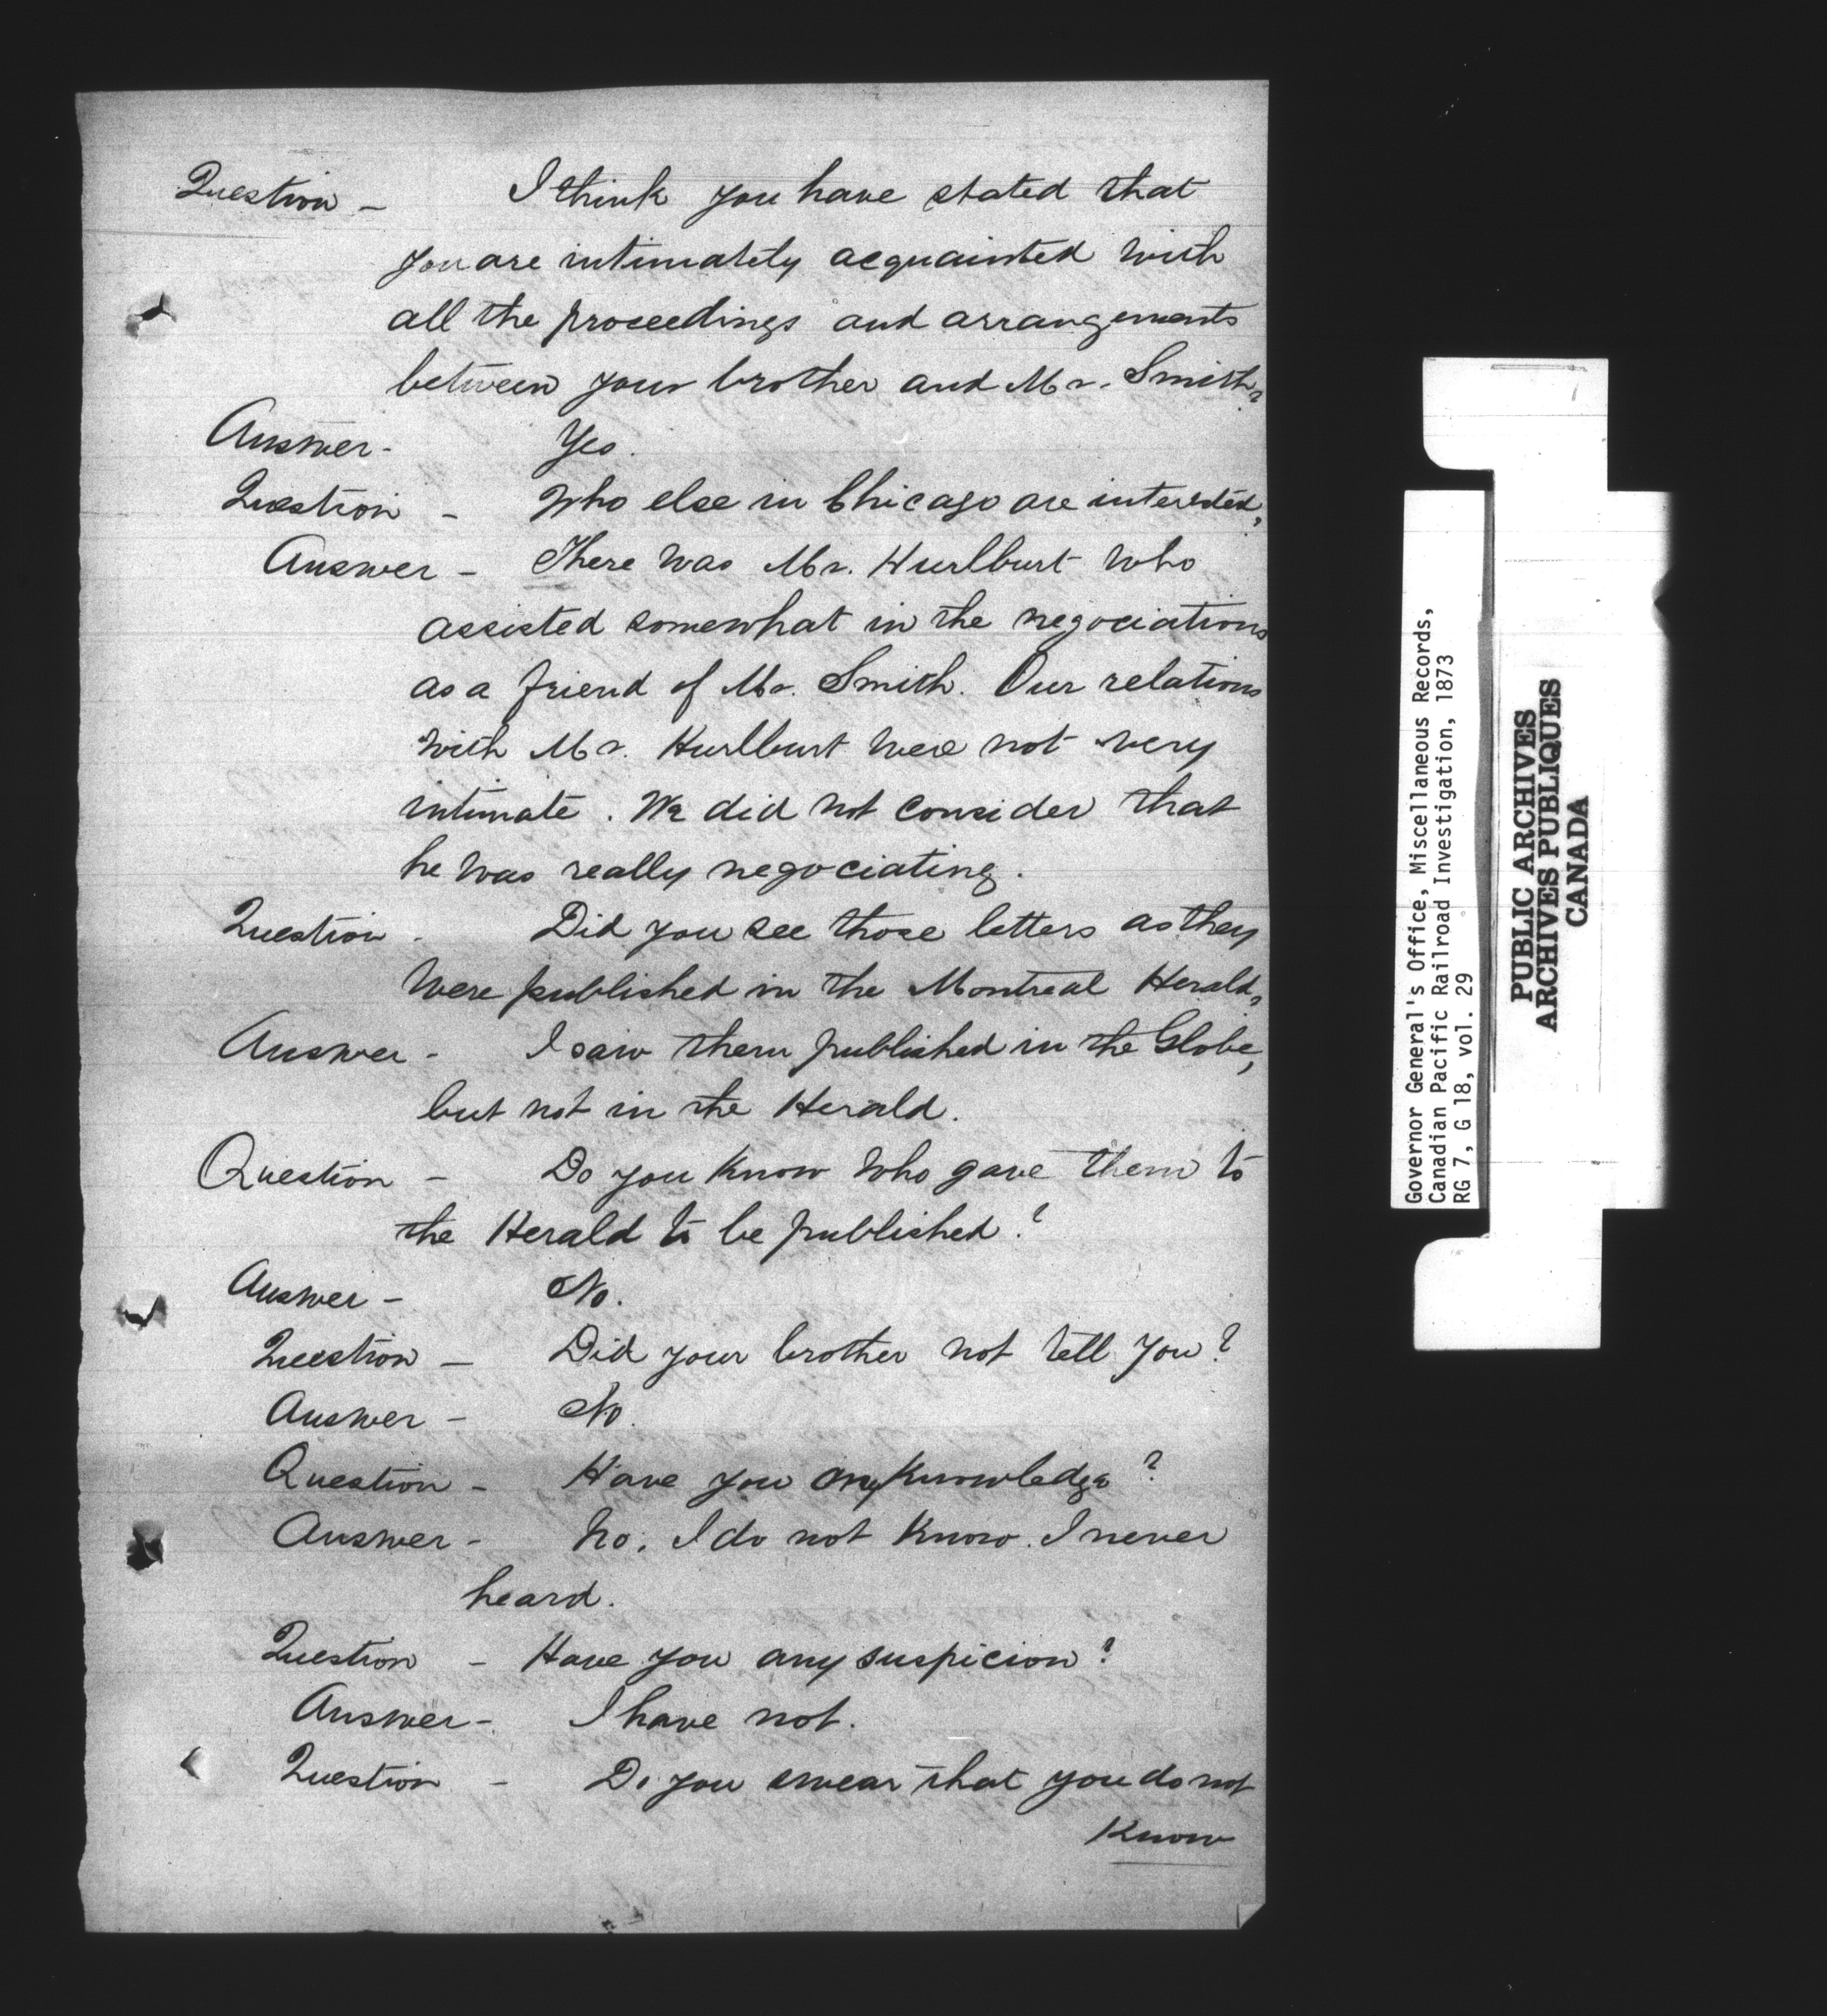 Question - I think you have stated that
you are intimately acquainted with
all the proceedings and arrangements
between your brother and Mr. Smith?
Answer - Yes.
Question - Who else in Chicago are interested?
Answer - There was Mr. Hurlburt who
assisted somewhat in the negociations
as a friend of Mr. Smith. Our relations
with Mr. Hurlburt were not very
intimate. We did not consider that
he was really negociating.
Question - Did you see those letters as they
were published in the Montreal Herald?
Answer - I saw them published in the Globe,
but not in the Herald.
Question - Do you know who gave them to
the Herald to be published?
Answer - No.
Question - Did your brother not tell you?
Answer - No.
Question - Have you any knowledge?
Answer - No. I do not know. I never
heard.
Question - Have you any suspicion?
Answer - I have not.
Question - Do you swear that you do not
know
Governor General's Office, Miscellaneous Records,
Canadian Pacific Railroad Investigation, 1873
RG 7, G 18, vol. 29
PUBLIC ARCHIVES
ARCHIVES PUBLIQUES
CANADA